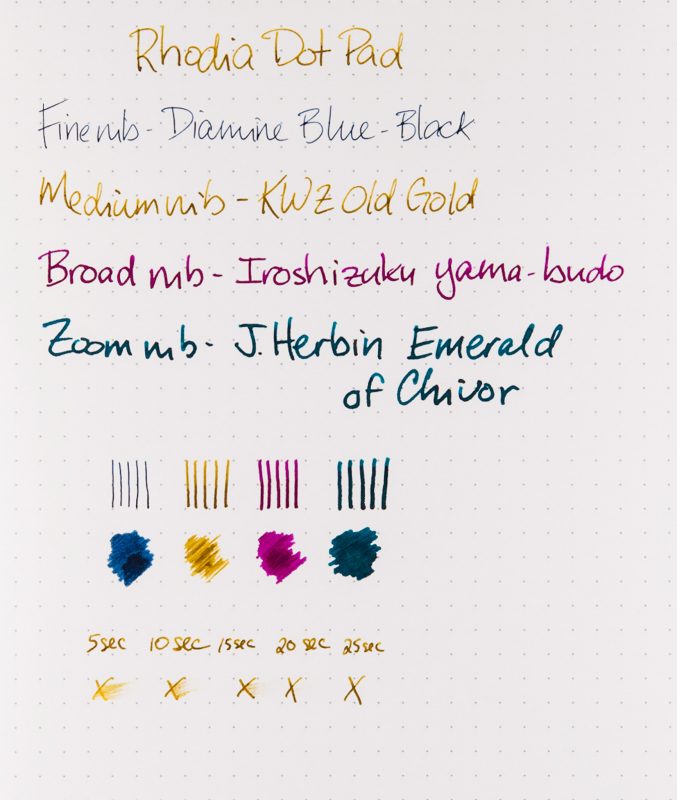 Rhodia Dot Pad
Fine nib - Diamine Blue-Black
Medium nib - KWZ Old Gold
Broad nib - Iroshizuku yama-budo
Zoom nib - J. Herbin Emerald
of Chivor
5sec 10sec 15sec 20 sec 25sec
X X X X X